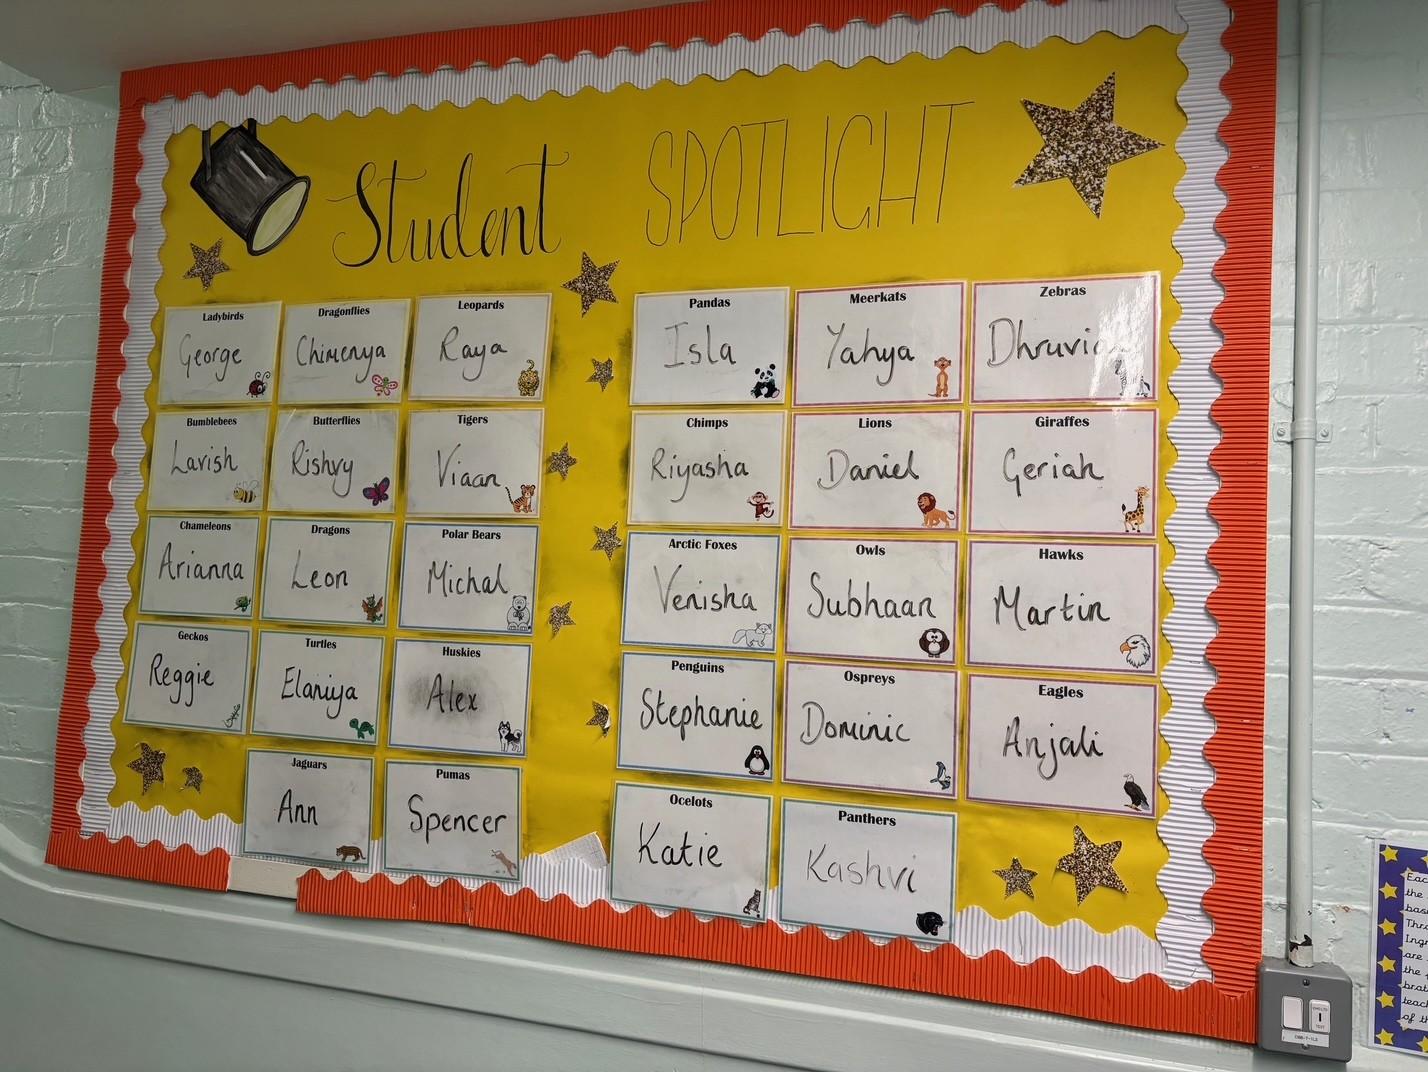 Student SPOTLIGHT
Ladybirds
George
Dragonflies
Chimenya
Leopards
Raya
Bumblebees
Lavish
Butterflies
Rishvy
Tigers
Viaan
Chameleons
Arianna
Dragons
Leon
Polar Bears
Michal
Geckos
Reggie
Turtles
Elaniya
Huskies
Alex
Jaguars
Ann
Pumas
Spencer
Pandas
Isla
Meerkats
Yahya
Zebras
Chimps
Riyasha
Lions
Daniel
Giraffes
Geriah
Arctic Foxes
Venisha
Owls
Subhaan
Hawks
Martin
Penguins
Stephanie
Ospreys
Dominic
Eagles
Anjali
Ocelots
Katie
Panthers
Kashvi
Eac
the
bas
Thr
Ingr
are
the
brat
teach
of th
TEST